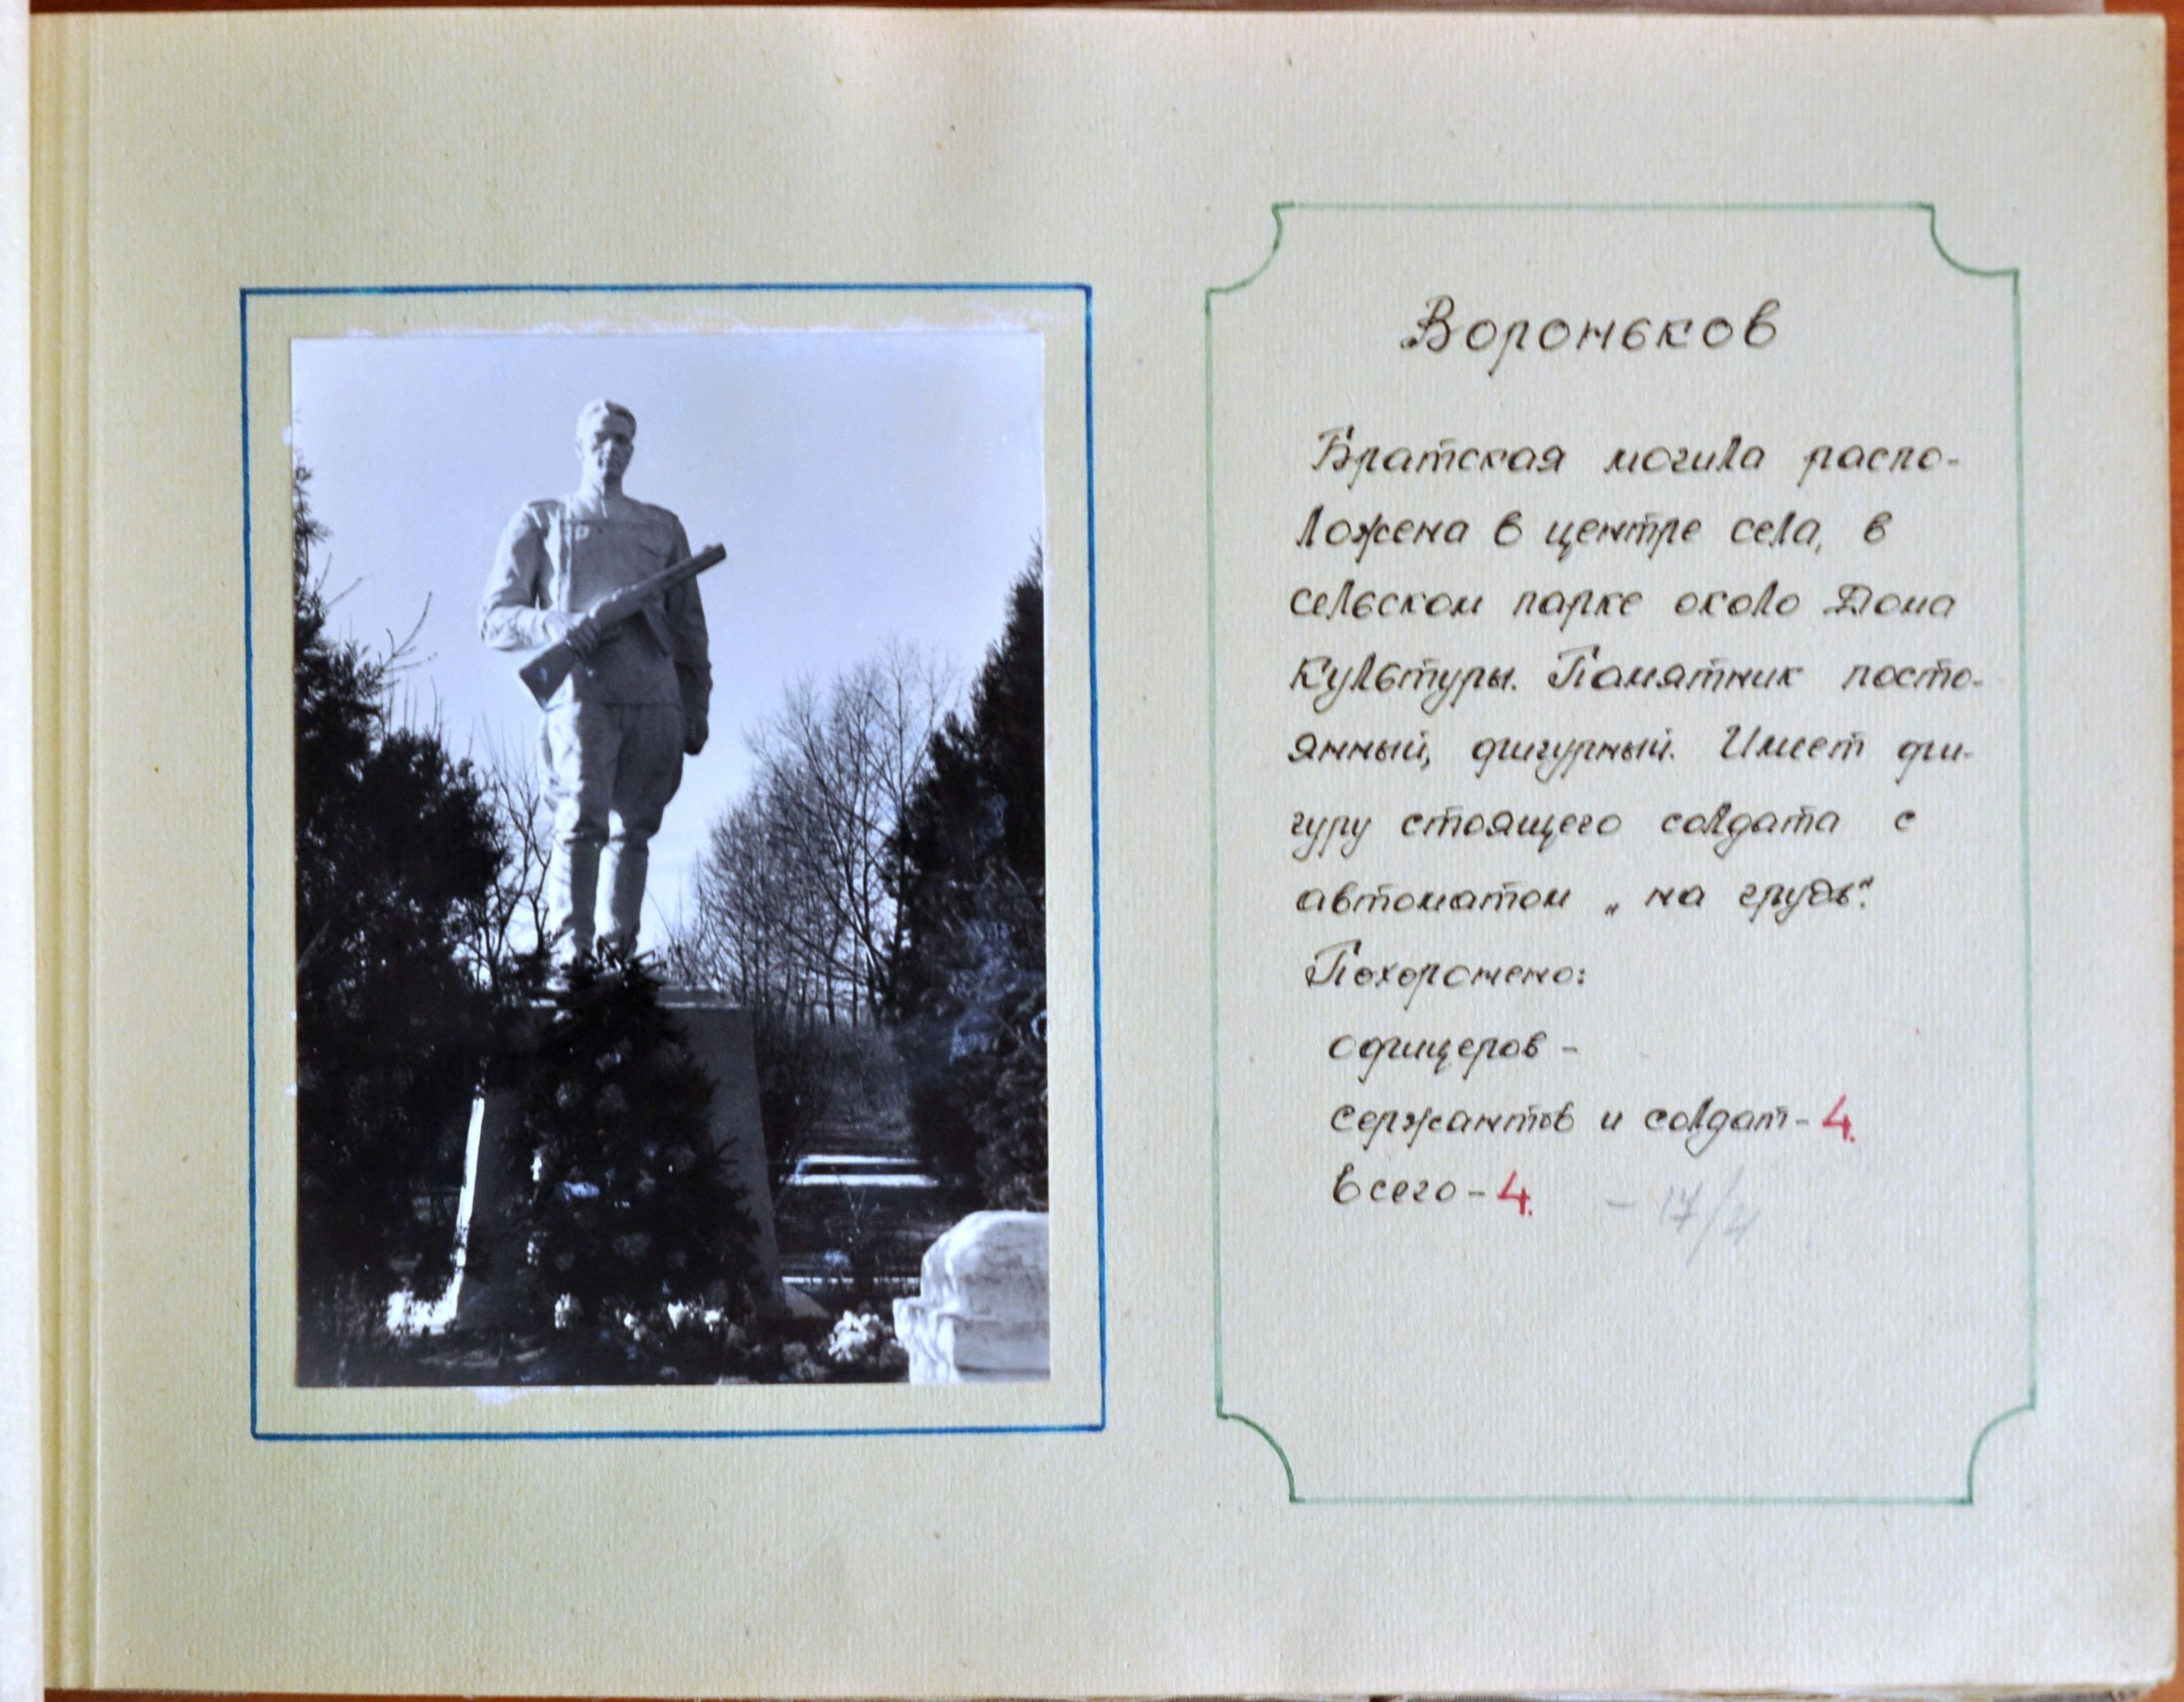 Вороньков
Братская могила распо-
ложена в центре села, в
сельском парке около Дома
Культуры. Памятник посто-
янный, фигурный. Имеет фи-
гуру стоящего солдата с
автоматом „на грудь“.
Похоронено:
офицеров -
сержантов и солдат - 4.
Всего - 4. - 17/